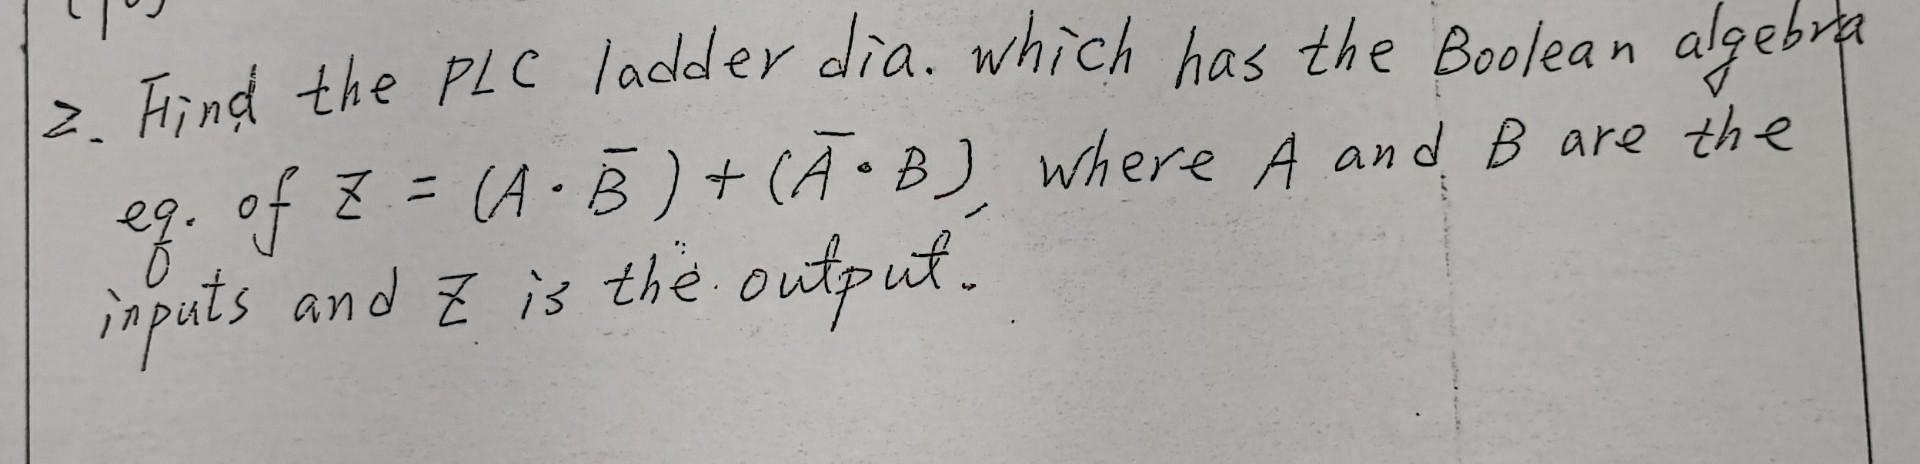 2. Find the PLC ladder dia. which has the Boolean algebra
eq. of Z = (A · B̅) + (A̅ · B), where A and B are the
inputs and Z is the output.